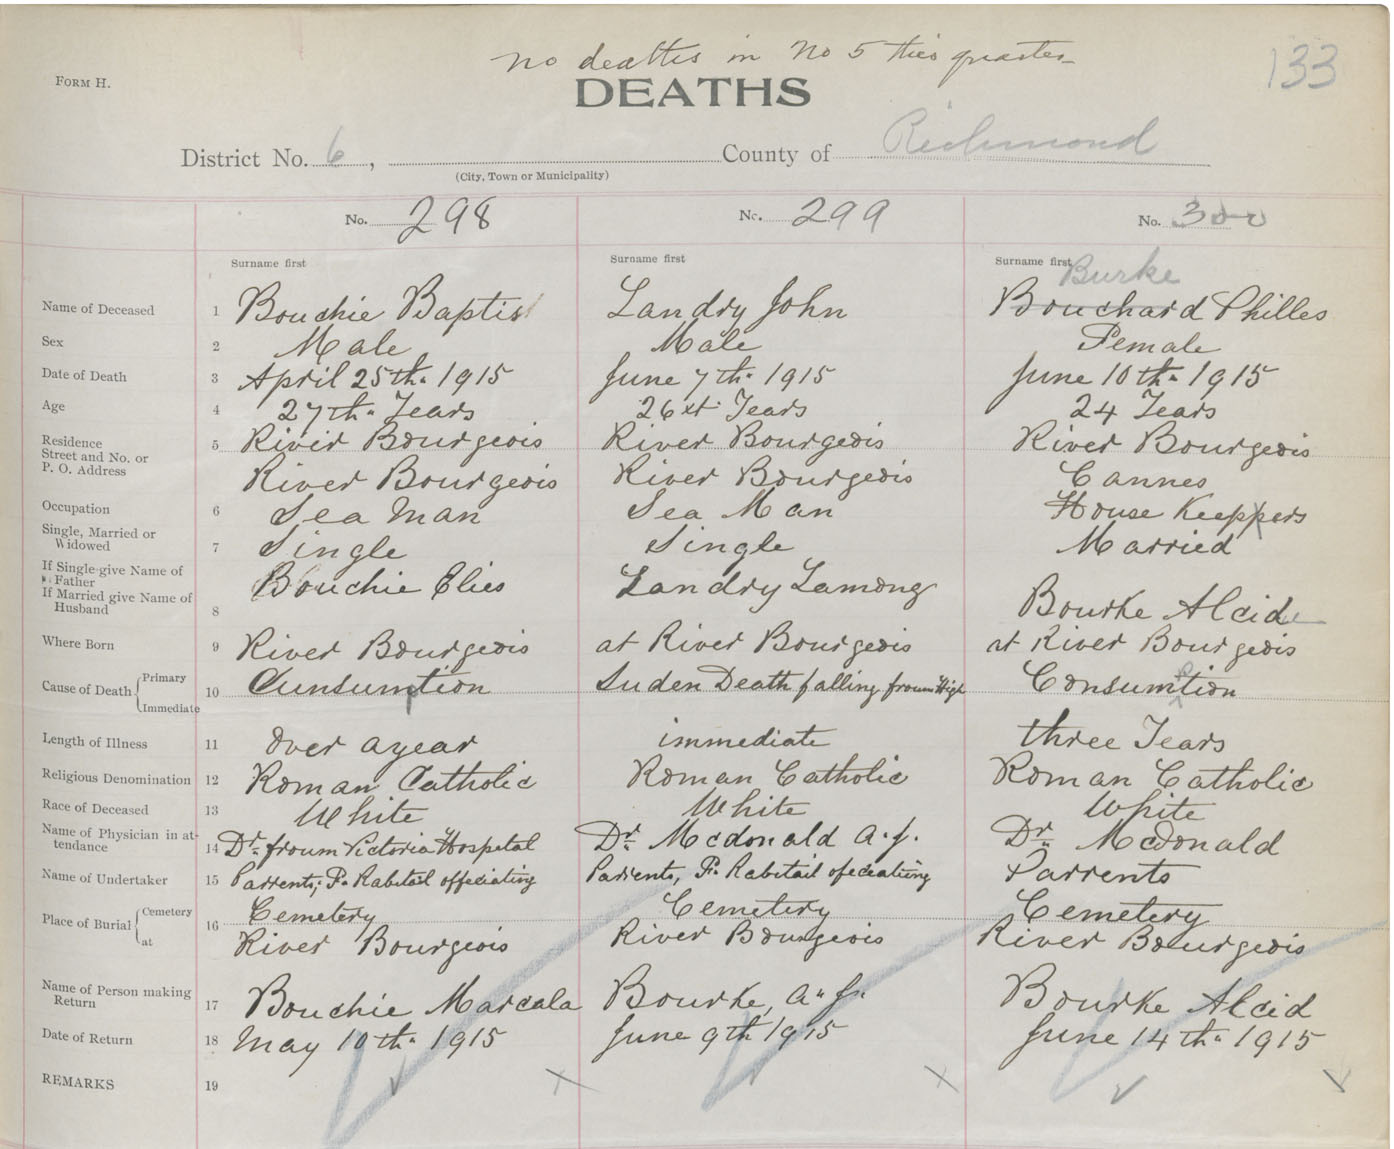 no deaths in No 5 this quarter
133
FORM H.
DEATHS
District No. 6, County of Richmond
(City, Town or Municipality)
No. 298 No. 299 No. 300
Surname first Surname first Surname first Burke
Name of Deceased 1 Bouchie Baptist Landry John Bouchard Philles
Sex 2 Male Male Female
Date of Death 3 April 25th. 1915 June 7th. 1915 June 10th. 1915
Age 4 27th. Years 26xt. Years 24 Years
Residence 5 River Bourgeois River Bourgeois River Bourgeois
Street and No. or
P. O. Address River Bourgeois River Bourgeois Cannes
Occupation 6 Sea man Sea Man House Keeppers
Single, Married or
Widowed 7 Single Single Married
If Single give Name of
Father Bouchie Elies Landry Lamong
If Married give Name of
Husband 8 Bourke Alcide
Where Born 9 River Bourgeois at River Bourgeois at River Bourgeois
Cause of Death Primary 10 Cunsumption Suden Death falling froum High Consumption
Immediate
Length of Illness 11 over a year immediate three Years
Religious Denomination 12 Roman Catholic Roman Catholic Roman Catholic
Race of Deceased 13 White White White
Name of Physician in at-
tendance 14 Dr. froum Victoria Hospital Dr. Mcdonald A. J. Dr. McDonald
Name of Undertaker 15 Parrents; F. Rabitail offeciating Parrents, F. Rabitail ofeciating Parrents
Place of Burial Cemetery 16 Cemetery Cemetery Cemetery
at River Bourgeois River Bourgeois River Bourgeois
Name of Person making
Return 17 Bouchie Marcala Bourke, A. J. Bourke Alcid
Date of Return 18 May 10th. 1915 June 9th 1915 June 14th. 1915
REMARKS 19